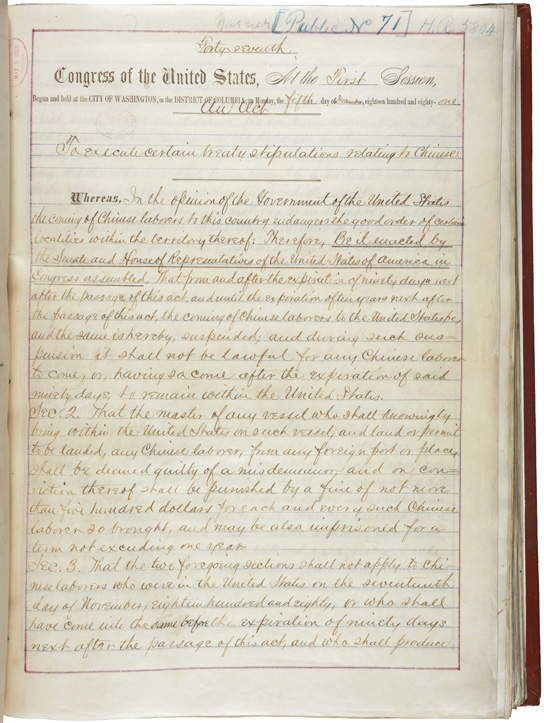 [Public No 71] H.R. 5804
Forty-seventh
Congress of the United States, At the First Session,
Begun and held at the CITY OF WASHINGTON, in the DISTRICT OF COLUMBIA, on Monday, the fifth day of December, eighteen hundred and eighty-one
An Act
To execute certain treaty stipulations relating to Chinese.
Whereas, In the opinion of the Government of the United States
the coming of Chinese laborers to this country endangers the good order of certain
localities within the territory thereof: Therefore, Be it enacted by
the Senate and House of Representatives of the United States of America in
Congress assembled, That from and after the expiration of ninety days next
after the passage of this act, and until the expiration of ten years next after
the passage of this act, the coming of Chinese laborers to the United States be,
and the same is hereby, suspended; and during such sus-
pension it shall not be lawful for any Chinese laborer
to come, or, having so come after the expiration of said
ninety days, to remain within the United States.
Sec. 2. That the master of any vessel who shall knowingly
bring within the United States on such vessel, and land or permit
to be landed, any Chinese laborer, from any foreign port or place,
shall be deemed guilty of a misdemeanor, and on con-
viction thereof shall be punished by a fine of not more
than five hundred dollars for each and every such Chinese
laborer so brought, and may be also imprisoned for a
term not exceeding one year.
Sec. 3. That the two foregoing sections shall not apply to Chi-
nese laborers who were in the United States on the seventeenth
day of November, eighteen hundred and eighty, or who shall
have come into the same before the expiration of ninety days
next after the passage of this act, and who shall produce